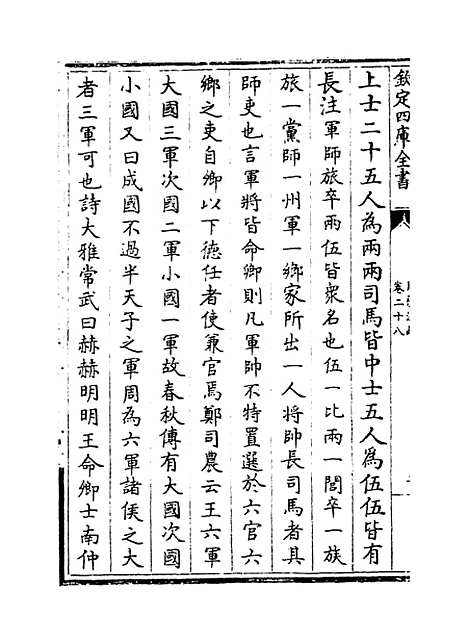 欽定四庫全書
卷二十八
上士二十五人為兩兩司馬皆中士五人為伍伍皆有
長注軍師旅卒兩伍皆衆名也伍一比兩一閭卒一族
旅一黨師一州軍一鄉家所出一人將帥長司馬者其
師吏也言軍將皆命卿則凡軍帥不特置選於六官六
鄉之吏自鄉以下德任者使兼官焉鄭司農云王六軍
大國三軍次國二軍小國一軍故春秋傳有大國次國
小國又曰成國不過半天子之軍周為六軍諸侯之大
者三軍可也詩大雅常武曰赫赫明明王命卿士南仲